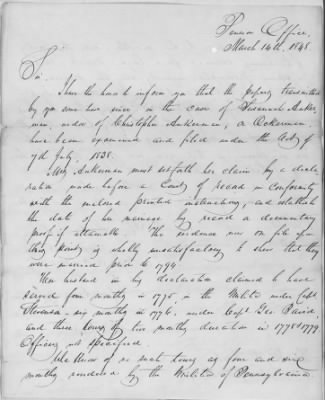 Pension Office,
March 14th, 1845
Sir.
I have the honor to inform you that the papers transmitted
by you some time since in the case of Susannah Anker-
man, widow of Christopher Ankerman, or Ackerman,
have been examined and filed under the Act of
7th July, 1838.
Mrs Ankerman must set forth her claim by a decla-
ration made before a Court of record in conformity
with the enclosed printed instructions, and establish
the date of her marriage by record or documentary
proof if attainable. The evidence now on file upon
this point is wholly unsatisfactory to show that they
were married prior to 1794
Her husband in his declaration claimed to have
served four months in 1775, in the Militia under Capt
Stevenson - six months in 1776, under Capt Geo. David,
and three tours of two months duration in 1778 & 1779
Officers not specified.
We know of no such tours as four and six
months rendered by the Militia of Pennsylvania